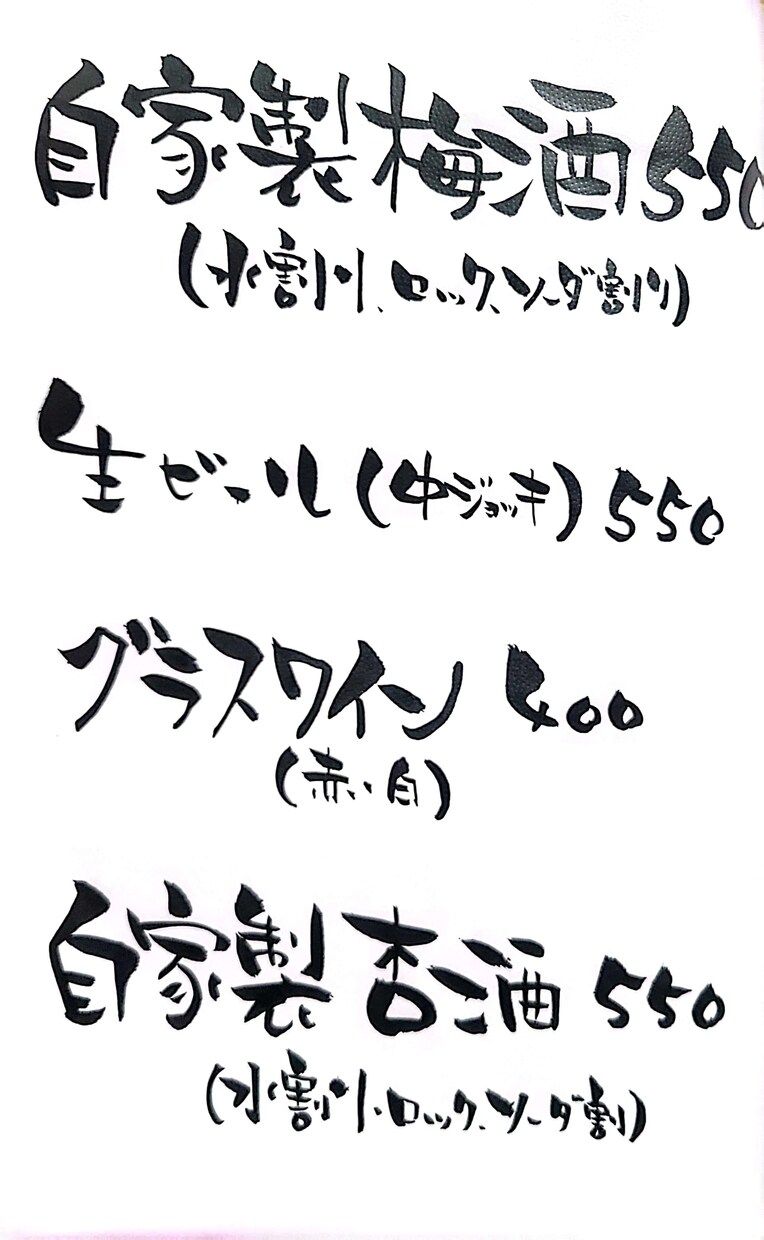 自家製梅酒550
(水割り、ロック、ソーダ割り)
生ビール(中ジョッキ)550
グラスワイン 400
(赤い・白)
自家製杏酒 550
(水割り、ロック、ソーダ割)